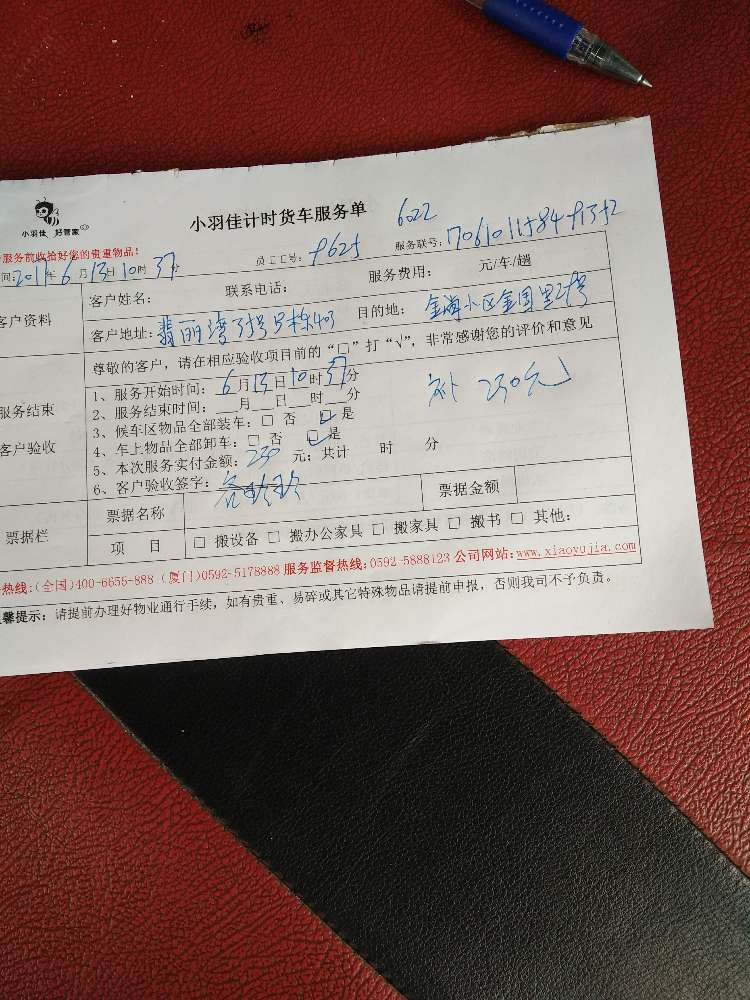 小羽佳 好管家
小羽佳计时货车服务单
6022
服务前收拾好您的贵重物品!
间:2017年6月13日10时37分
员工工号: 9625
服务联号:
客户资料
客户姓名: 联系电话: 服务费用: 元/车/趟
客户地址: 翡丽湾 403 目的地: 金海小区金国里29号
服务结束
客户验收
尊敬的客户，请在相应验收项目前的“□”打“√”，非常感谢您的评价和意见
1、服务开始时间: 6月13日10时37分
补 230元
2、服务结束时间: __月__日__时__分
3、候车区物品全部装车: □ 否 ☑ 是
4、车上物品全部卸车: □ 否 ☑ 是
5、本次服务实付金额: 230 元; 共计 时 分
6、客户验收签字:
票据栏
票据名称 票据金额
项 目 □ 搬设备 □ 搬办公家具 □ 搬家具 □ 搬书 □ 其他:
热线:(全国)400-6655-888 (厦门)0592-5178888 服务监督热线:0592-5888123 公司网站:www.xiaoyujia.com
馨提示: 请提前办理好物业通行手续，如有贵重、易碎或其它特殊物品请提前申报，否则我司不予负责。